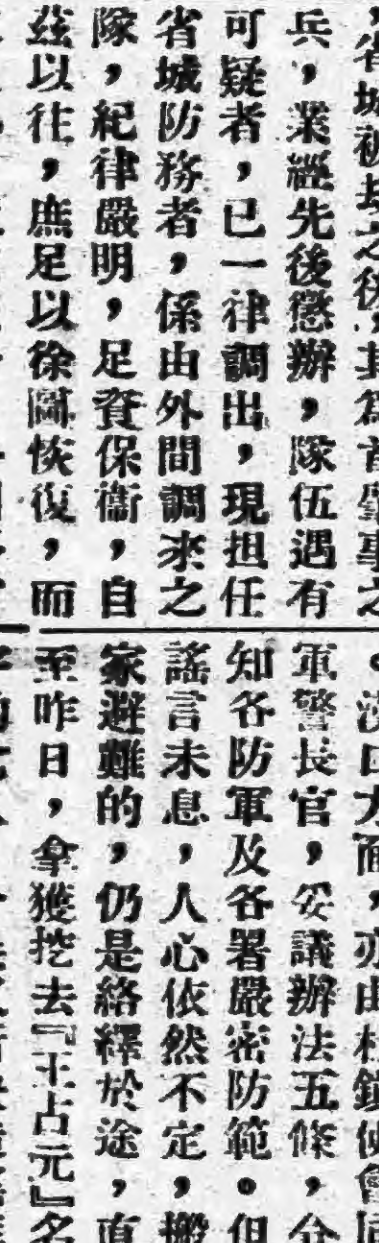 ，省城被劫之後，其爲首肇事之
兵，業經先後懲辦，隊伍遇有
可疑者，已一律調出，現担任
省城防務者，係由外間調來之
隊，紀律嚴明，足資保衞，自
茲以往，庶足以徐圖恢復，而
。漢口方面，亦由杜鎮使會同
軍警長官，妥議辦法五條，分
知各防軍及各署嚴密防範。但
謠言未息，人心依然不定，搬
家避難的，仍是絡繹於途，直
至昨日，拿獲挖去『王占元』名